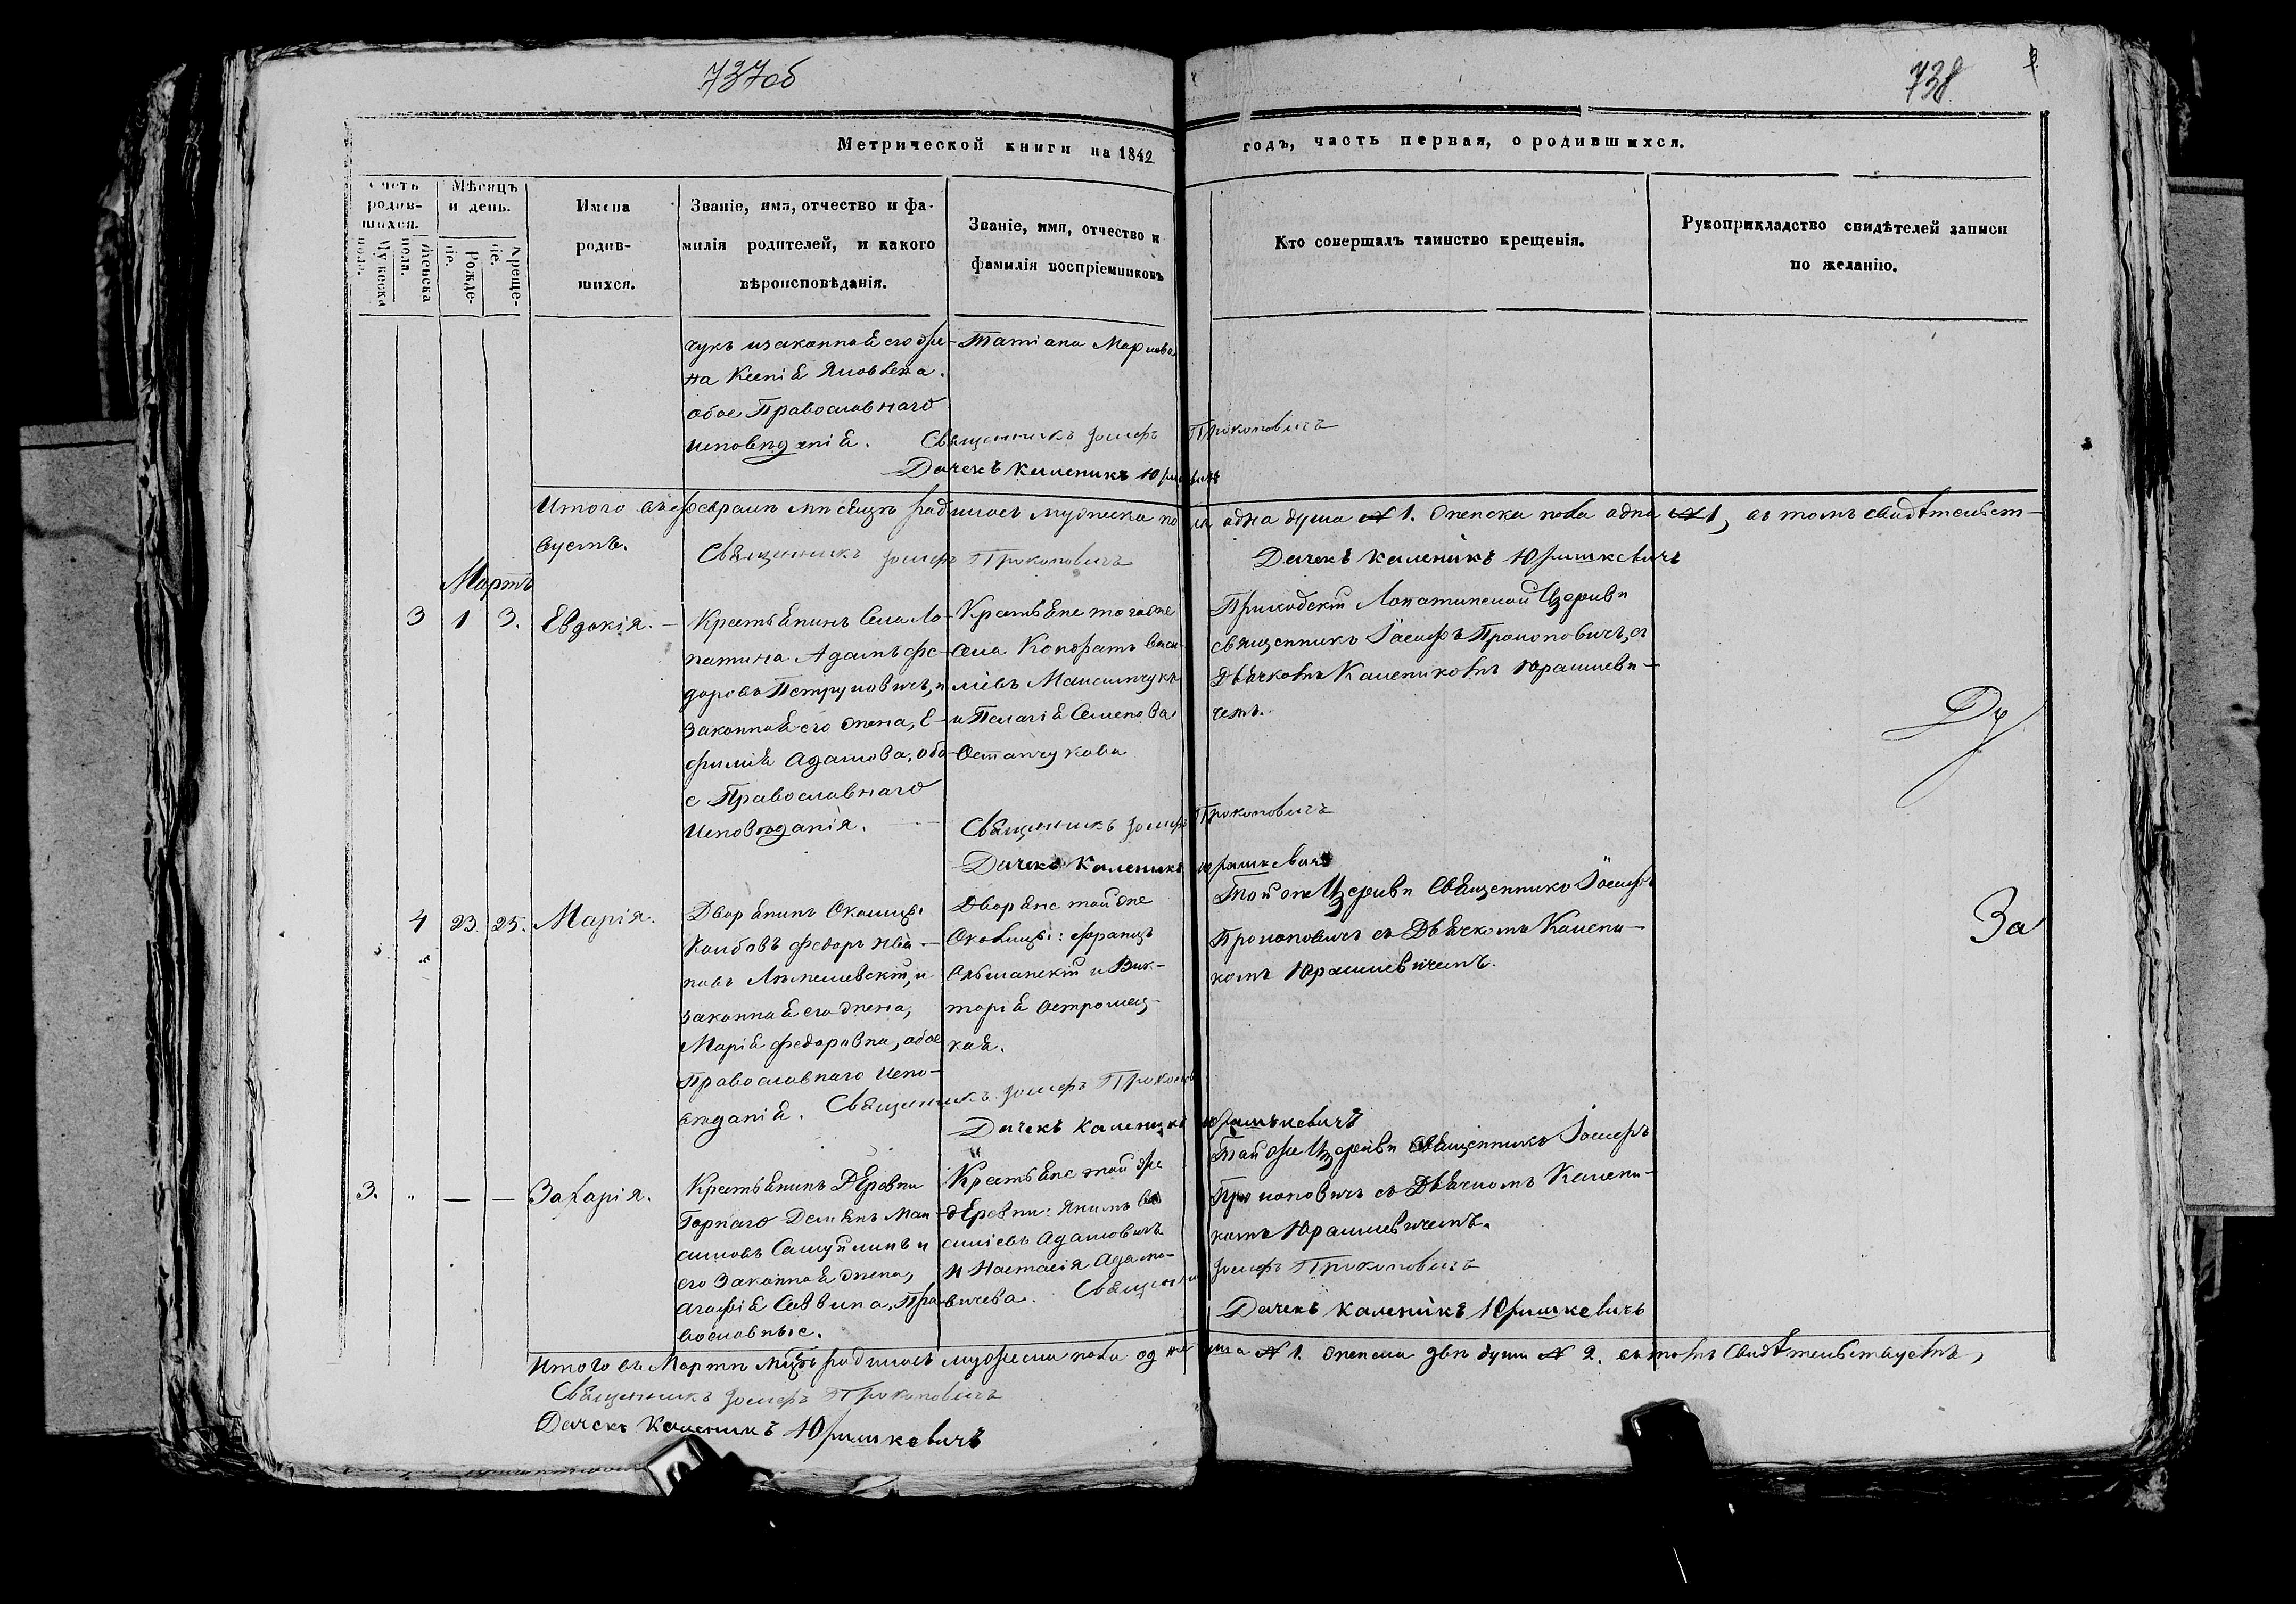 737об
738
Метрической книги на 1842
годъ, часть первая, о родившихся.
Счетъ родив-шихся.
Мужеска пола.
Женска пола.
Мѣсяцъ и день.
Рожде-ніе.
Креще-ніе.
Имена
родив-
шихся.
Званіе, имя, отчество и фа-
милія родителей, и какого
вѣроисповѣданія.
Званіе, имя, отчество и
фамилія воспріемниковъ
Кто совершалъ таинство крещенія.
Рукоприкладство свидѣтелей записи
по желанію.
чукъ изаконная его же-
на Ксенія Яковлена.
обое Православнаго
исповѣданія.
Татіана
Священникъ Іосифъ Прокоповичъ
Дячекъ Каленикъ Юрашкевичъ
Итого въ февралѣ мѣсяцѣ родилось мужеска пола одна душа № 1. женска пола одна № 1, въ томъ свидѣтельст-
вуемъ.
Священникъ Іосифъ Прокоповичъ
Дячекъ Каленикъ Юрашкевичъ
Мартъ
3 1 3. Евдокія.
Крестьянинъ Села Ло-
патина Адамъ Фе-
доровъ Петруковичъ, и
законная его жена, Е-
фимія Адамова, обо-
е Православнаго
Исповѣданія.
Крестьяне тогоже
Села Кондратъ Васи-
ліевъ Максимчукъ
и Пелагія Семенова
Остапчукова
Приходскій Лопатинской Церкви
священникъ Іосифъ Прокоповичъ, съ
Дьячкомъ Каленикомъ Юрашкеви-
чемъ.
Священникъ Іосифъ Прокоповичъ
Дячекъ Каленикъ Юрашкевичъ
4 23. 25. Марія.
Дворянинъ Околицы
Колбовъ Федоръ Ива-
новъ и
законная его жена,
Марія Федоровна, обое
Православнаго Испо-
вѣданія.
Дворяне тойже
Околицы: Францъ
Ольшанскій и Вик-
торія Остромец-
кая.
Тойже Церкви Священникъ Іосифъ
Прокоповичъ съ Дьячкомъ Калени-
комъ Юрашкевичемъ.
За
Священникъ Іосифъ Прокопов
Дячекъ Каленикъ Юрашкевичъ
3. „ — — Захарія.
Крестьянинъ Деревни
Горнаго Деміянъ Мак-
симовъ и
его Законная жена,
Агафія Саввина, Пра-
вославные.
Крестьяне тойже
деревни: Якимъ Ва-
силіевъ Адамовичъ
и Настасія Адамо-
вичева.
Тойже Церкви Священникъ Іосифъ
Прокоповичъ съ Дьячкомъ Калени-
комъ Юрашкевичемъ.
Священникъ Іосифъ Прокоповичъ
Дячекъ Каленикъ Юрашкевичъ
Итого въ Мартѣ мѣсяцѣ родилось мужеска пола одна душа № 1. женска двѣ души № 2. въ томъ свидѣтельствуемъ,
Священникъ Іосифъ Прокоповичъ
Дячекъ Каленикъ Юрашкевичъ